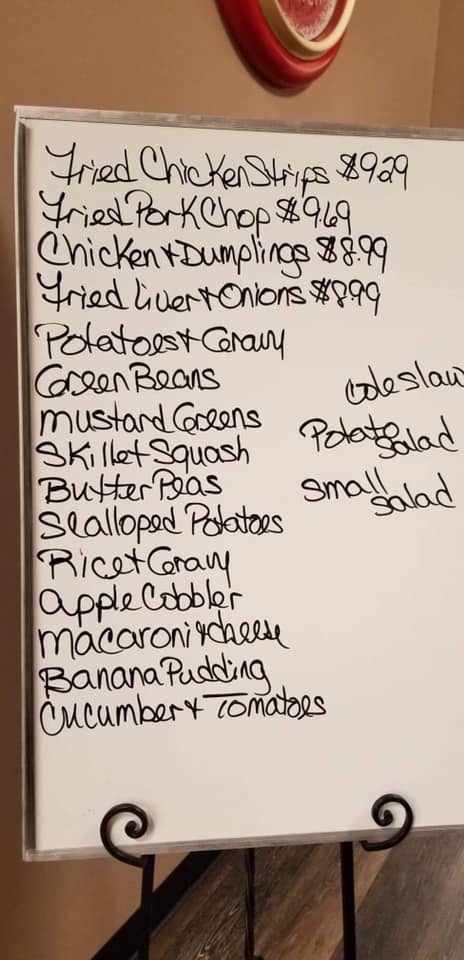 Fried Chicken Strips $9.29
Fried Pork Chop $9.69
Chicken & Dumplings $8.99
Fried Liver & Onions $8.99
Potatoes & Gravy
Green Beans
Mustard Greens
Skillet Squash
Butter Peas
Scalloped Potatoes
Rice & Gravy
Apple Cobbler
Macaroni & cheese
Banana Pudding
Cucumber & Tomatoes
Coleslaw
Potato Salad
Small Salad